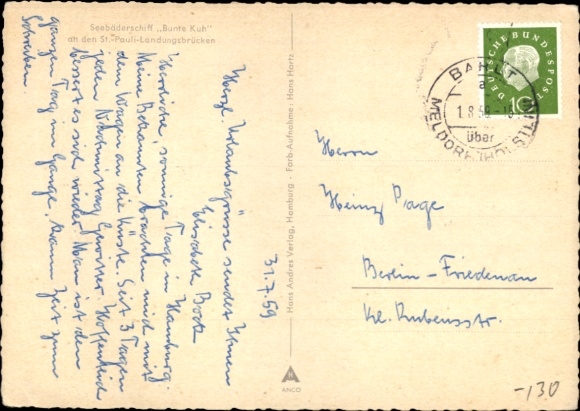 Seebäderschiff „Bunte Kuh"
an den St.-Pauli-Landungsbrücken
31.7.59
Herzl. Urlaubsgrüsse sendet Ihnen
Elisabeth
Herrliche, sonnige Tage in Hamburg.
Meine Bekannten brachten mich mit
dem Wagen an die Küste. Seit 3 Tagen
jeden Nachmittag Gewitter. Hoffentlich
bessert es sich wieder. Man ist den
ganzen Tag im Gange, kaum Zeit zum
Schreiben.
Hans Andres Verlag, Hamburg - Farb-Aufnahme: Hans Hartz
ANCO
DEUTSCHE BUNDESPOST
10
BARLT
a
1.8.59
über
MELDORF (HOLSTEIN)
Herrn
Heinz Page
Berlin-Friedenau
Kl. Rubensstr.
-130